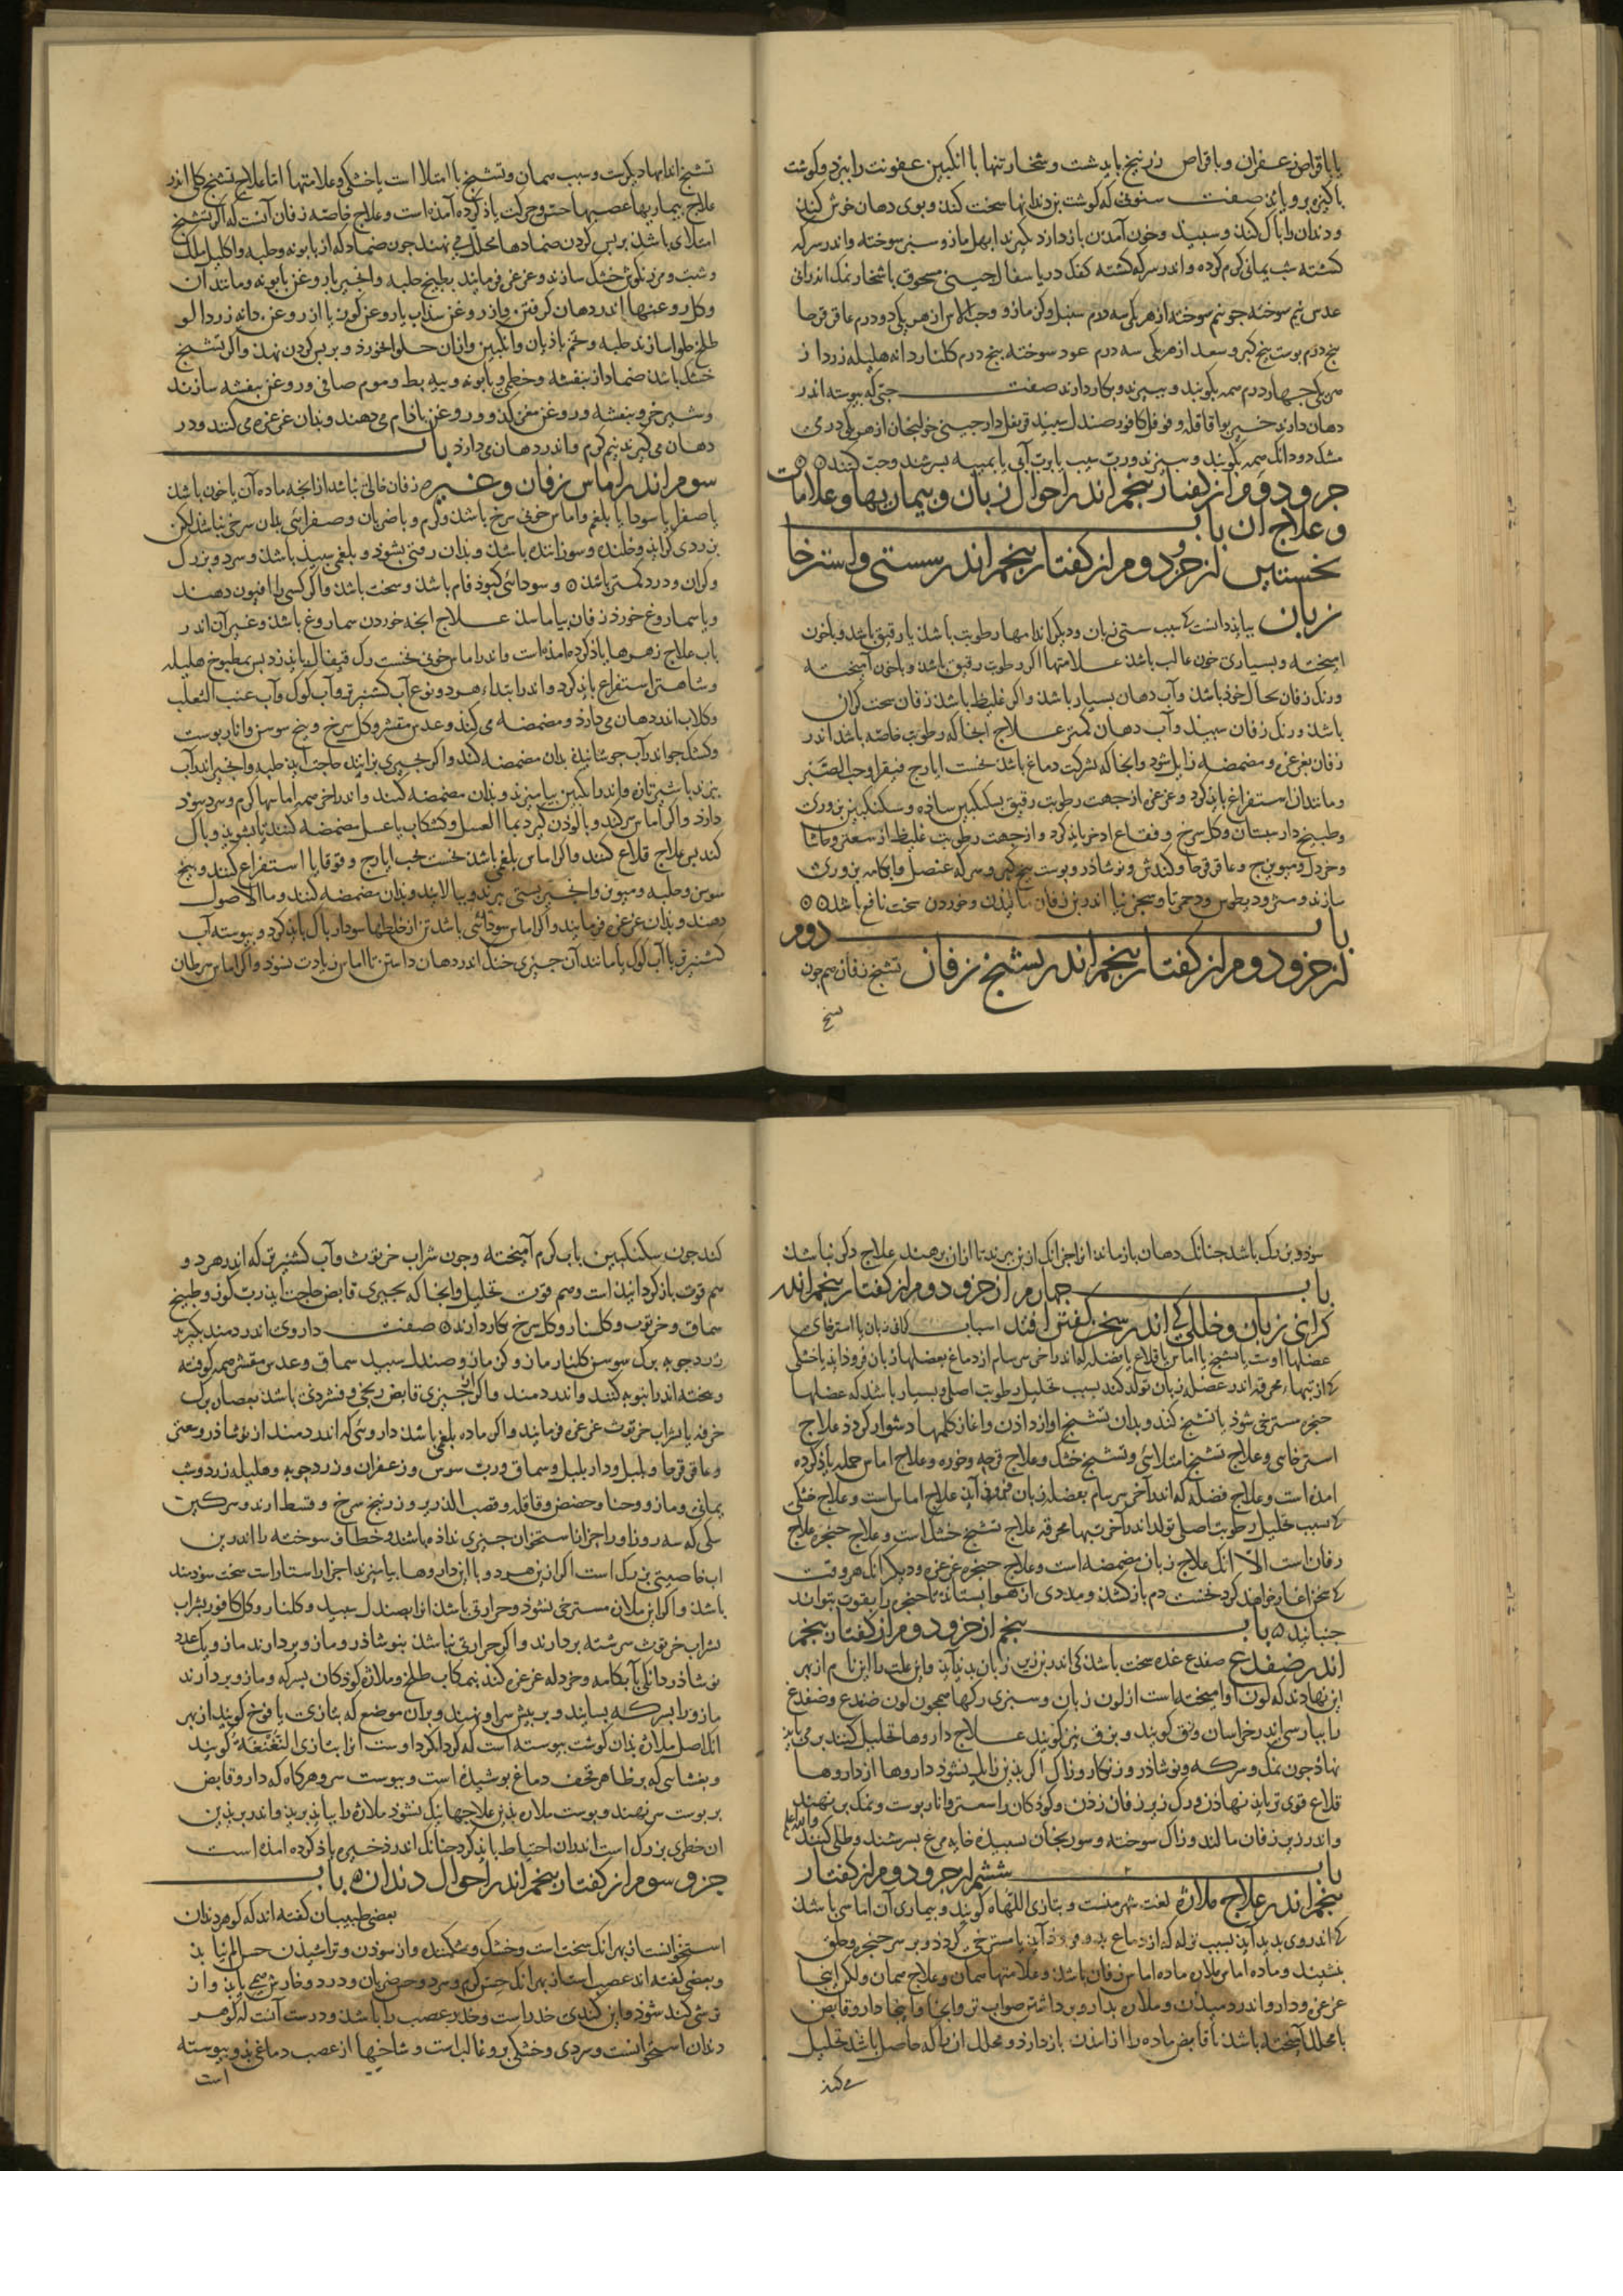 یا باقراص زعفران و باقراص زرنیخ باید شست و شخار تنها با انکبین عفونت را ببرد و کوشت
باکیزه برویاند صفت سنونی که کوشت بن دندانها سخت کند و بوی دهان خوش کند
و دندان را باک کند و سبید و خون آمدن باز دارد بکیرند ابهل مازو سبز سوخته و اندر سرکه
کشته شب یمانی کرم کرده و اندر سرکه کشته کفک دریا سفال جینی مسحوق با شخار نمک اندرانی
عدس نیم سوخته جو نیم سوخته از هر یکی سه درم سنبل و کزمازو و حب الاس از هر یکی دو درم عاقرقرحا
بنج درم بوست بیخ کبر و سعد از هر یکی سه درم عود سوخته بنج درم کلنار دانه هلیله زرد از
هر یکی جهار درم همه بکوبند و ببیزند و بکار دارند صفت حبی که بیوسته اندر
دهان دارند خیربوا قاقله و فوفل کافور صندل سبید قرنفل دارجینی خولنجان از هر یکی درمی
مشک دو دانک همه بکوبند و ببزند و برب سیب یا برب آبی یا بمیبه بسرشند و حب کنند
جزو دوم از کفتار بنجم اندر احوال زبان و بیماریها و علامات
و علاج آن باب
نخستین از جزو دوم از کفتار بنجم اندر سستی و استرخا
زبان بباید دانست که سبب سستی زبان و دیکر اندامها رطوبت باشد یا رقیق باشد و با خون
امیخته و بسیاری خون غالب باشد علامتها اکر رطوبت رقیق باشد و با خون آمیخته
و رنک زفان بحال خوذ باشد و آب دهان بسیار باشد و اکر غلیظ باشد زفان سخت کران
باشد و رنک زفان سبید و آب دهان کمتر علاج آنجا که رطوبت خاصه باشد اندر
زفان بغرغره و مضمضه زایل شود و انجا که بشرکت دماغ باشد نخست ایارج فیقرا و حب الصبر
و مانند آن استفراغ باید کرد و غرغره از جهت رطوبت رقیق بسکنکبین ساذه و سکنکبین بزوری
و طبیخ دارسبتان و کل سرخ و فقاع اذخر باید کرد و از جهت رطوبت غلیظ از سعتر و حاشا
و خردل و میویزج و عاقرقرحا و کندش و نوشاذر و بوست بیخ کبر و سرکه عنصل و ابکامه بزوری
سازند و مثرودیطوس و دحمرتا و سجزنیا اندر بن زفان مالیذن و خوردن سخت نافع باشد
باب دوم
از جزو دوم از کفتار بنجم اندر تشنج زفان تشنج زفان هم جون
تشنج
تشنج اندامها دیکرست و سبب همان و تشنج یا امتلا است یا خشکی و علامتها اما علاج تشنج کلی اندر
علاج بیماریها عصبها حس و حرکت یاذ کرده آمده است و علاج خاصه زفان آنست که اکر تشنج
امتلای باشد بر بس کردن ضمادها محلل می نهند جون ضماد که از بابونه و حلبه و اکلیل الملک
و شبت و مرزنکوش خشک سازند و غرغره فرمایند بطبیخ حلبه و انجیر یا روغن بابونه و مانند آن
و کل روغنها اندر دهان کرفتن و از روغن سداب یا روغن کوز یا از روغن دانه زردالو
طلخ حلوا سازند حلبه و تخم باذیان و انکبین و از ان حلوا خورد و بر بس کردن نهذ و اکر تشنج
خشک باشد ضماد از بنفشه و خطمی و بابونه و بیه بط و موم صافی و روغن بنفشه سازند
و شیر خر و بنفشه و روغن مغز کدو و روغن باذام می دهند و بذان غرغره می کنند و در
دهان می کیرند نیم کرم و اندر دهان می دارد باب
سوم اندر اماس زفان و غیره زفان خالی نباشد از انجه ماده آن یا خون باشد
یا صفرا یا سودا یا بلغم و اماس خونی سرخ باشد و کرم و با ضربان و صفرائی بذان سرخی نباشد لکن
بزردی کراید و خلنده و سوزاننده باشد و بذان رفتنی بشوذ و بلغمی سبید باشد و سرد و بزرک
و کران و درد کمتر باشد و سودائی کبوذ فام باشد و سخت باشد و اکر کسی را افیون دهند
و یا سماروغ خورد زفان بیاماسد علاج انجه خوردن سماروغ باشد و غیر آن اندر
باب علاج زهرها یاذ کرده امده است و اندر اماس خونی نخست رک قیفال باید زد بس بمطبوخ هلیله
و شاهتره استفراغ باید کرد و اندر ابتداء هر دو نوع آب کشنیز تر و آب کوک و آب عنب الثعلب
و کلاب اندر دهان می دارد و مضمضه می کند و عدس مقشر و کل سرخ و بیخ سوسن و انار بوست
و کشک جو اندر آب جوشانیده بذان مضمضه کنند و اکر بجیزی بزایند حاجت آید حلبه و انجیر اندر آب
ببزند یا شیر تازه و اندر انکبین بیامیزند و بذان مضمضه کنند و اندر اخر همه اماسها کرم و سرد سود
دارد و اکر اماس سر کند و بالوذن کیرد بما العسل و کشکاب یا عسل مضمضه کنند تا بشوید و باک
کند بس علاج قلاع کنند و اکر اماس بلغمی باشد نخست بحب ایارج و قوقایا استفراغ کنند و بیخ
سوسن و حلبه و میویز و انجیر بستی ببزند و ببالایند و بذان مضمضه کنند و ما الاصول
دهند و بذان غرغره فرمایند و اکر اماس سودائی باشد تن از خلطها سودا باک باید کرد و بیوسته آب
کشنیز تر یا آب کوک یا مانند آن جیزی خنک اندر دهان داشتن تا اماس زیادت نشود و اکر اماس سرطان
سوذ و بزرک باشد جنانک دهان باز ماند انرا جز انک از بن ببرند تا از ان برهند علاج دکر نباشد
باب جهارم از جزو دوم از کفتار بنجم اندر
کرانی زبان و خللی که اندر سخن کفتن افتد اسباب کرانی زبان یا استرخای
عضلها اوست یا تشنج یا اماس یا قلاع یا فضله که اندر اخر سرسام از دماغ بعضلها زبان فروذ اید یا خشکی
که از تبها محرقه اندر عضله زبان تولد کند بسبب تحلیل رطوبت اصلی و بسیار باشد که عضلها
حنجره مسترخی شوذ یا تشنج کند و بدان تشنج اواز داذن و اغاز کلمها دشوار کردذ علاج
استرخای و علاج تشنج امتلائی و تشنج خشک و علاج قرحه و خوره و علاج اماس جمله یاذ کرده
امده است و علاج فضله که اندر آخر سرسام بعضله زبان فروذ آید علاج اماس است و علاج خشکی
که بسبب تحلیل رطوبت اصلی تولد اندر آخر تبها محرقه علاج تشنج خشک است و علاج حنجره علاج
زفان است الا انک علاج زبان مضمضه است و علاج حنجره غرغره و دیکر انک هر وقت
که سخن اغاز خواهند کرد نخست دم باز کشند و مددی از هوا بستانند تا حنجره را بقوت بتوانند
جنبانید باب بنجم از جزو دوم از کفتار بنجم
اندر ضفدع ضفدع غده سخت باشد که اندر زیر زبان بدید آید و این علت را این نام از بهر
این نهادند که لون او امیخته است از لون زبان و سبزی رکها همجون لون ضفدع و ضفدع
را ببارسی اندر خراسان وزق کویند و بزف نیز کویند علاج داروها تحلیل کننده بر می باید
نهاذ جون نمک و سرکه و نوشاذر و زنکار و زاک اکر بذین زایل نشوذ داروها از داروها
قلاع قوی تر باید نهاذن و رک زیر زفان زذن و کوذکان را سعتر و انار بوست و نمک بر نهند
و اندر زیر زفان مالند و زاک سوخته و سورنجان بسبیده خایه مرغ بسرشند و طلی کنند والله اعلم
باب ششم از جزو دوم از کفتار
بنجم اندر علاج ملازه لغت شهر منست و بتازی اللهاة کویند و بیماری آن اماسی باشد
که اندر وی بدید آید بسبب نزله که از دماغ بدو فروذ آید یا مسترخی کردذ و بر سر حنجره و حلق
بنشیند و ماده اماس ملازه ماده اماس زفان باشد و علامتها همان و علاج همان ولکن اینجا
غرغره و دارو اندر دمیدن و ملازه بدارو برداشتن صواب تر و انجا و اینجا دارو قابض
با محلل آمیخته باشد تا قابض ماده را از امدن باز دارد و محلل ان را که حاصل باشد تحلیل
می کند
کند جون سکنکبین باب کرم آمیخته و جون شراب خرتوث و آب کشنیز تر که اندر هر دو
هم قوت باز کردانیدن است و هم قوت تحلیل و انجا که بجیزی قابض حاجت آید رب کوز و طبیخ
سماق و خرنوب و کلنار و کل سرخ بکار دارند صفت داروی اندر دمند بکیرند
زردجوبه برک سوسن کلنار مازو کزمازو صندل سبید سماق و عدس مقشر همه کوفته
و بیخته اندر انبوبه کنند و اندر دمند و اکر جیزی قابض ریختی و فشردنی باشد بعصاره برک
خرفه یا بشراب خرتوث غرغره فرمایند و اکر ماده بلغمی باشد داروئی که اندر دمند از نوشاذر و سعتر
و عاقرقرحا و بلبل و داربلبل و سماق و رب سوس و زعفران و زردجوبه و هلیله زرد و شب
یمانی و مازو و حنا و حضض و قاقله و قصب الذریره و زرنیخ سرخ و قسط ارند و سرکین
سکی که سه روز او را جز از استخوان جیزی نداذه باشند و خطاف سوخته را اندرین
باب خاصیتی بزرک است اکر ازین هر دو با این داروها بیامیزند اجزا راستا راست سخت سودمند
باشد و اکر این ملازه مسترخی نشوذ و حرارتی باشد انرا بصندل سبید و کلنار و کل کافور بشراب
بشراب خرتوث سرشته بردارند و اکر حرارتی نباشد بنوشاذر و مازو بردارند مازو یک عدد
نوشاذر دانکی بآبکامه و خردله غرغره کند بنمکاب طلخ و ملازه کوذکان بسرکه و مازو بردارند
مازو را بسرکه بسایند و بر بیش سر او نهند و بر آن موضع که بتازی یافوخ کویند از بهر
انک اصل ملازه بذان کوشت بیوسته است که کرداکرد اوست انرا بتازی النغنغه کویند
و بغشایی که بر ظاهر قحف دماغ بوشیده است و بیوست سر و هرکاه که دارو قابض
بر بوست سر نهند و بوست ملازه بذین علاجها نیک نشوذ ملازه را بباید برید و اندر برید
ان خطری بزرک است اندر ان احتیاط باید کرد جنانک اندر ذخیره یاذ کرده امذه است
جزو سوم از کفتار بنجم اندر احوال دندان باب
بعضی طبیبان کفته اند که کوهر دندان
استخوانست از بهر انک سخت است و خشک و شکننده و از سوذن و تراشیذن حس الم نیابذ
و بعضی کفته اند عصب است از بهر انک حس کرم و سرد و حس ضربان و درد و خارش همی یابذ و از
ترشی کند شوذ و این کندی خدر است و خدر عصب را باشد و درست آنست که کوهر
دندان استخوانست و سردی و خشکی برو غالب است و شاخها از عصب دماغی بذو بیوسته
است